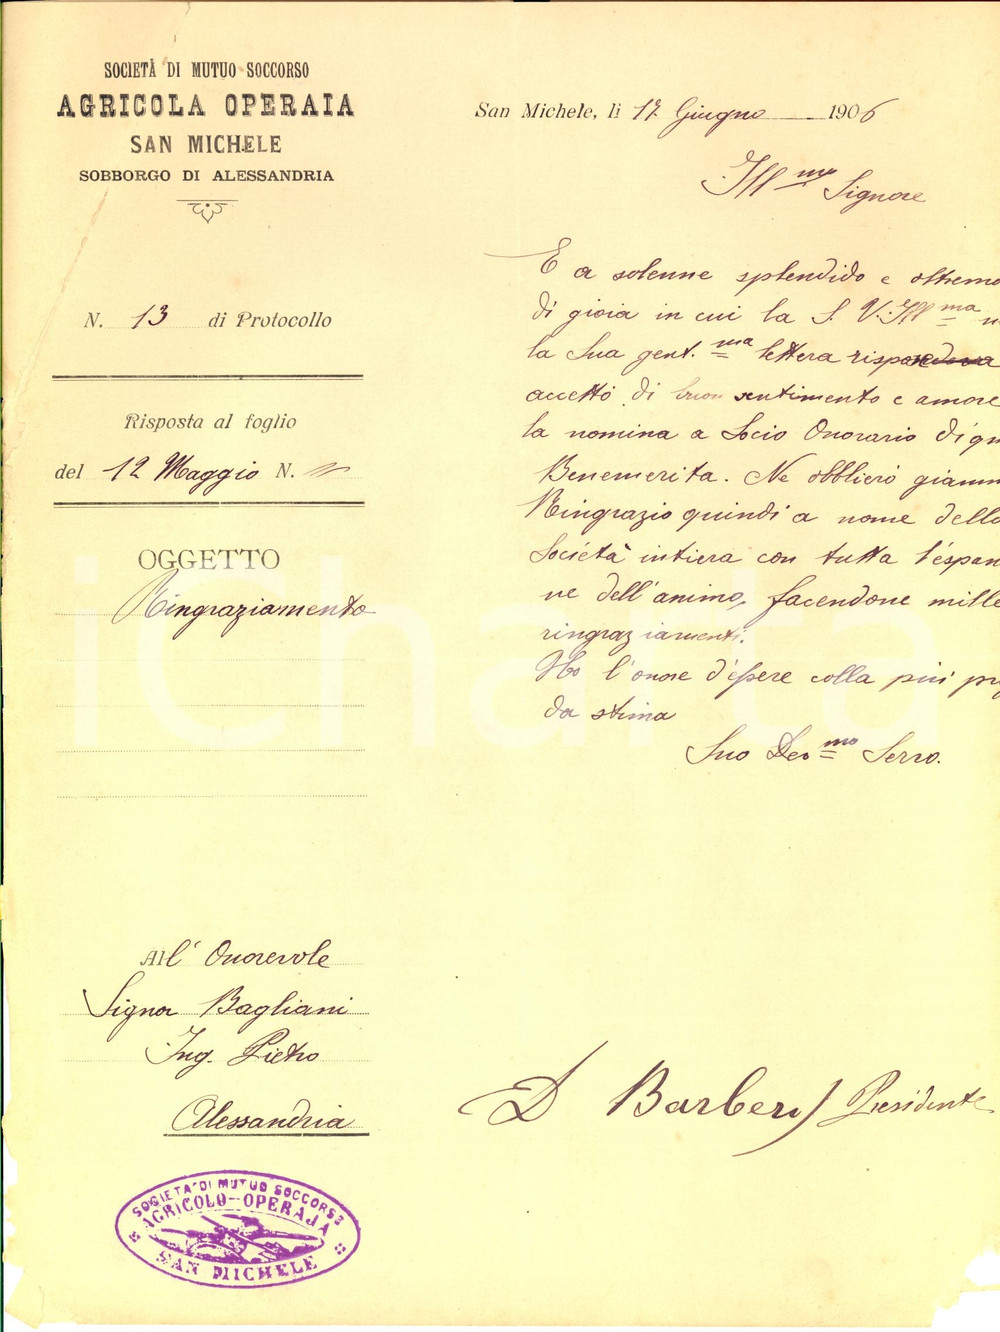 SOCIETÀ DI MUTUO SOCCORSO
AGRICOLA OPERAIA
SAN MICHELE
SOBBORGO DI ALESSANDRIA
N. 13 di Protocollo
Risposta al foglio
del 12 Maggio N.
OGGETTO
Ringraziamento
All' Onorevole
Signor Bagliani
Ing. Pietro
Alessandria
SOCIETA' DI MUTUO SOCCORSO
AGRICOLO-OPERAJA
SAN MICHELE
San Michele, li 17 Giugno 1906
Ill.mo Signore
E a solenne splendido e estremo
di gioia in cui la S. V. Ill.ma
la Sua gent.ma lettera
accettò di buon sentimento e amore
la nomina a Socio Onorario
Benemerita. Ne obblierò giamm
Ringrazio quindi a nome della
Società intiera con tutta l'espan
ve dell'animo, facendone mille
ringraziamenti.
Ho l'onore d'essere colla più pr
da stima
Suo Dev.mo Servo.
D Barberi Presidente
iCharta